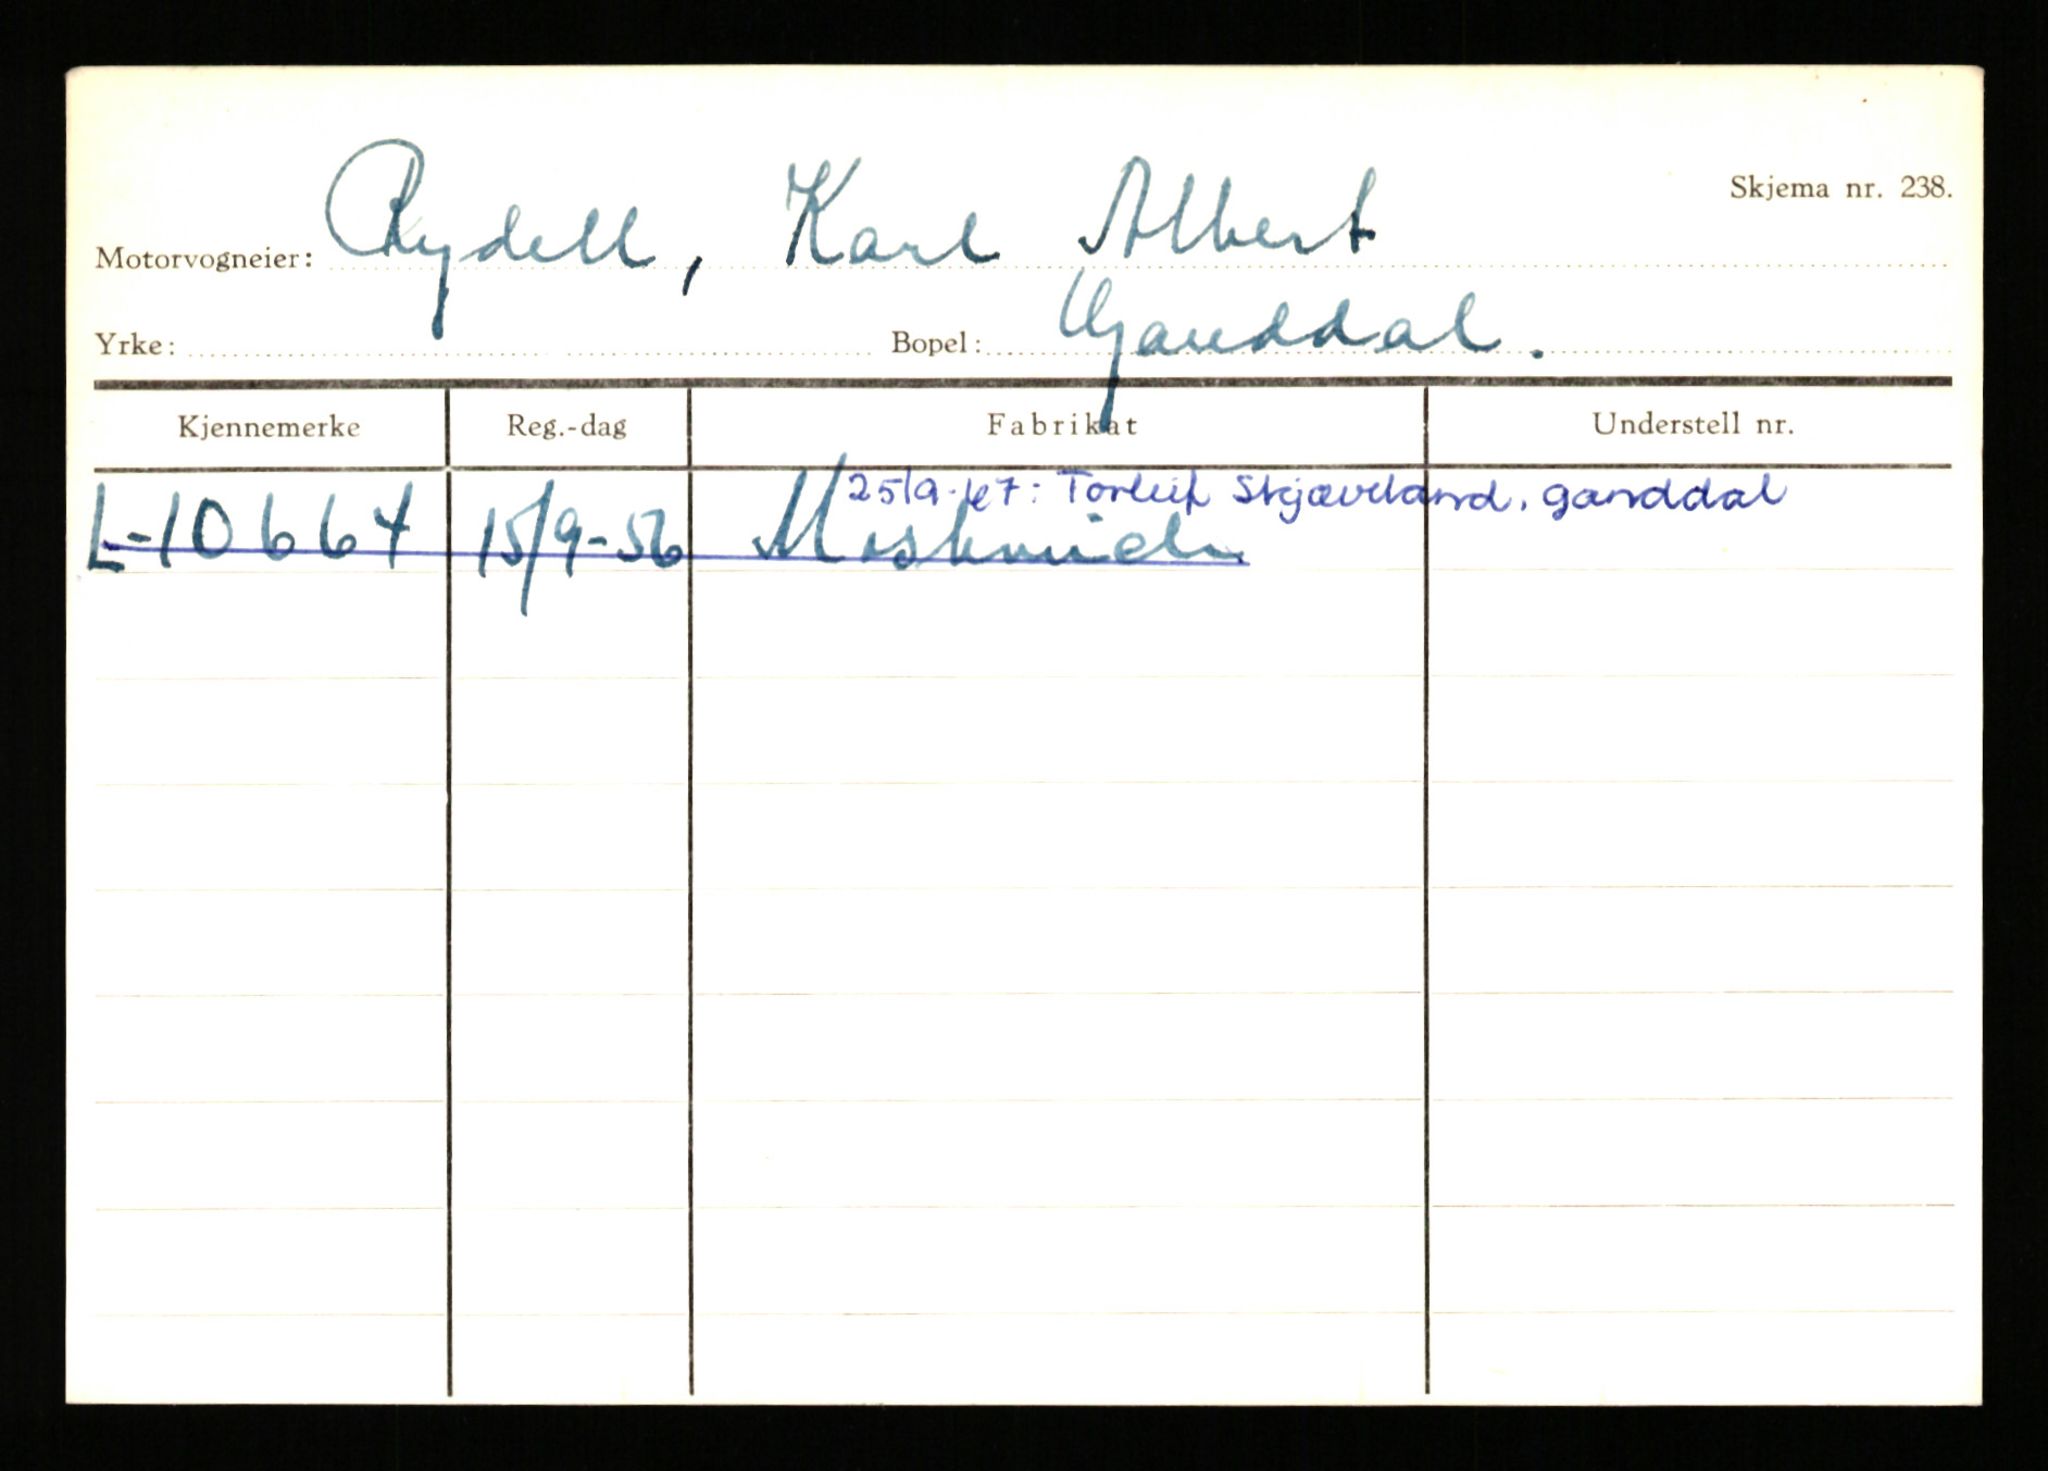 Skjema nr. 238.
Motorvogneier: Rydell, Karl Albert
Yrke: Bopel: Ganddal.
Kjennemerke Reg.-dag Fabrikat Understell nr.
25/9-67: Torleif Skjæveland, Ganddal
L-10664 15/9-56 Moskvich